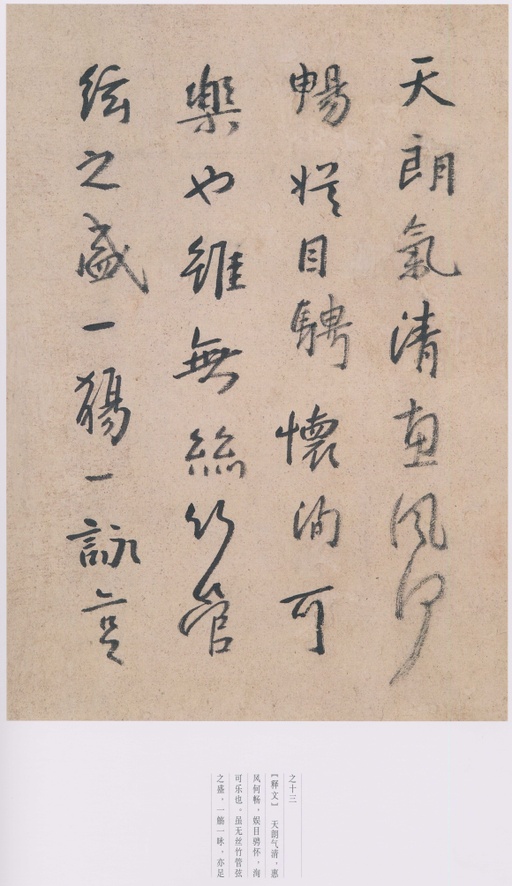 天朗氣清惠風何
暢娱目騁懷洵可
樂也雖無絲竹管
絃之盛一觴一詠亦足
之十三
[释文] 天朗气清，惠
风何畅，娱目骋怀，洵
可乐也。虽无丝竹管弦
之盛，一觞一咏，亦足